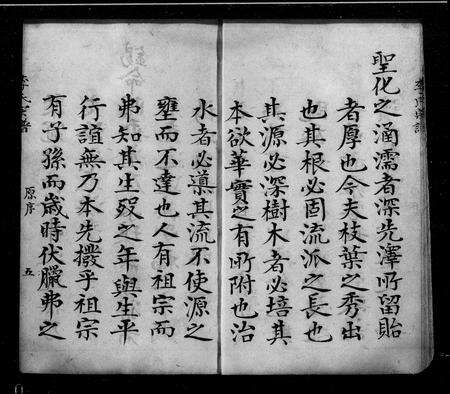 聖化之涵濡者深先澤所留貽
者厚也今夫枝葉之秀出
也其根必固流派之長也
其源必深樹木者必培其
本欲華實之有所附也治
水者必導其流不使源之
壅而不達也人有祖宗而
弗知其生歿之年與生平
行誼無乃本先撥乎祖宗
有子孫而歲時伏臘弗之
原序 五